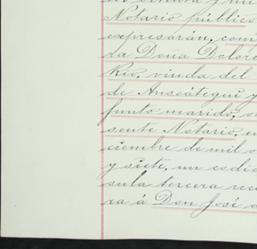 Notario público
expresarán, com
da Doña Dolore
Rio, viuda del
de Anscátegui y
funto marido, o
sente Notario, en
ciembre de mil o
y siete, un codic
sula tercera rec
xa á Don José